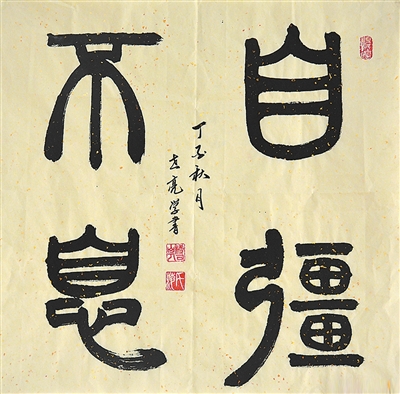 自彊
不息
丁酉秋月
志亮学書